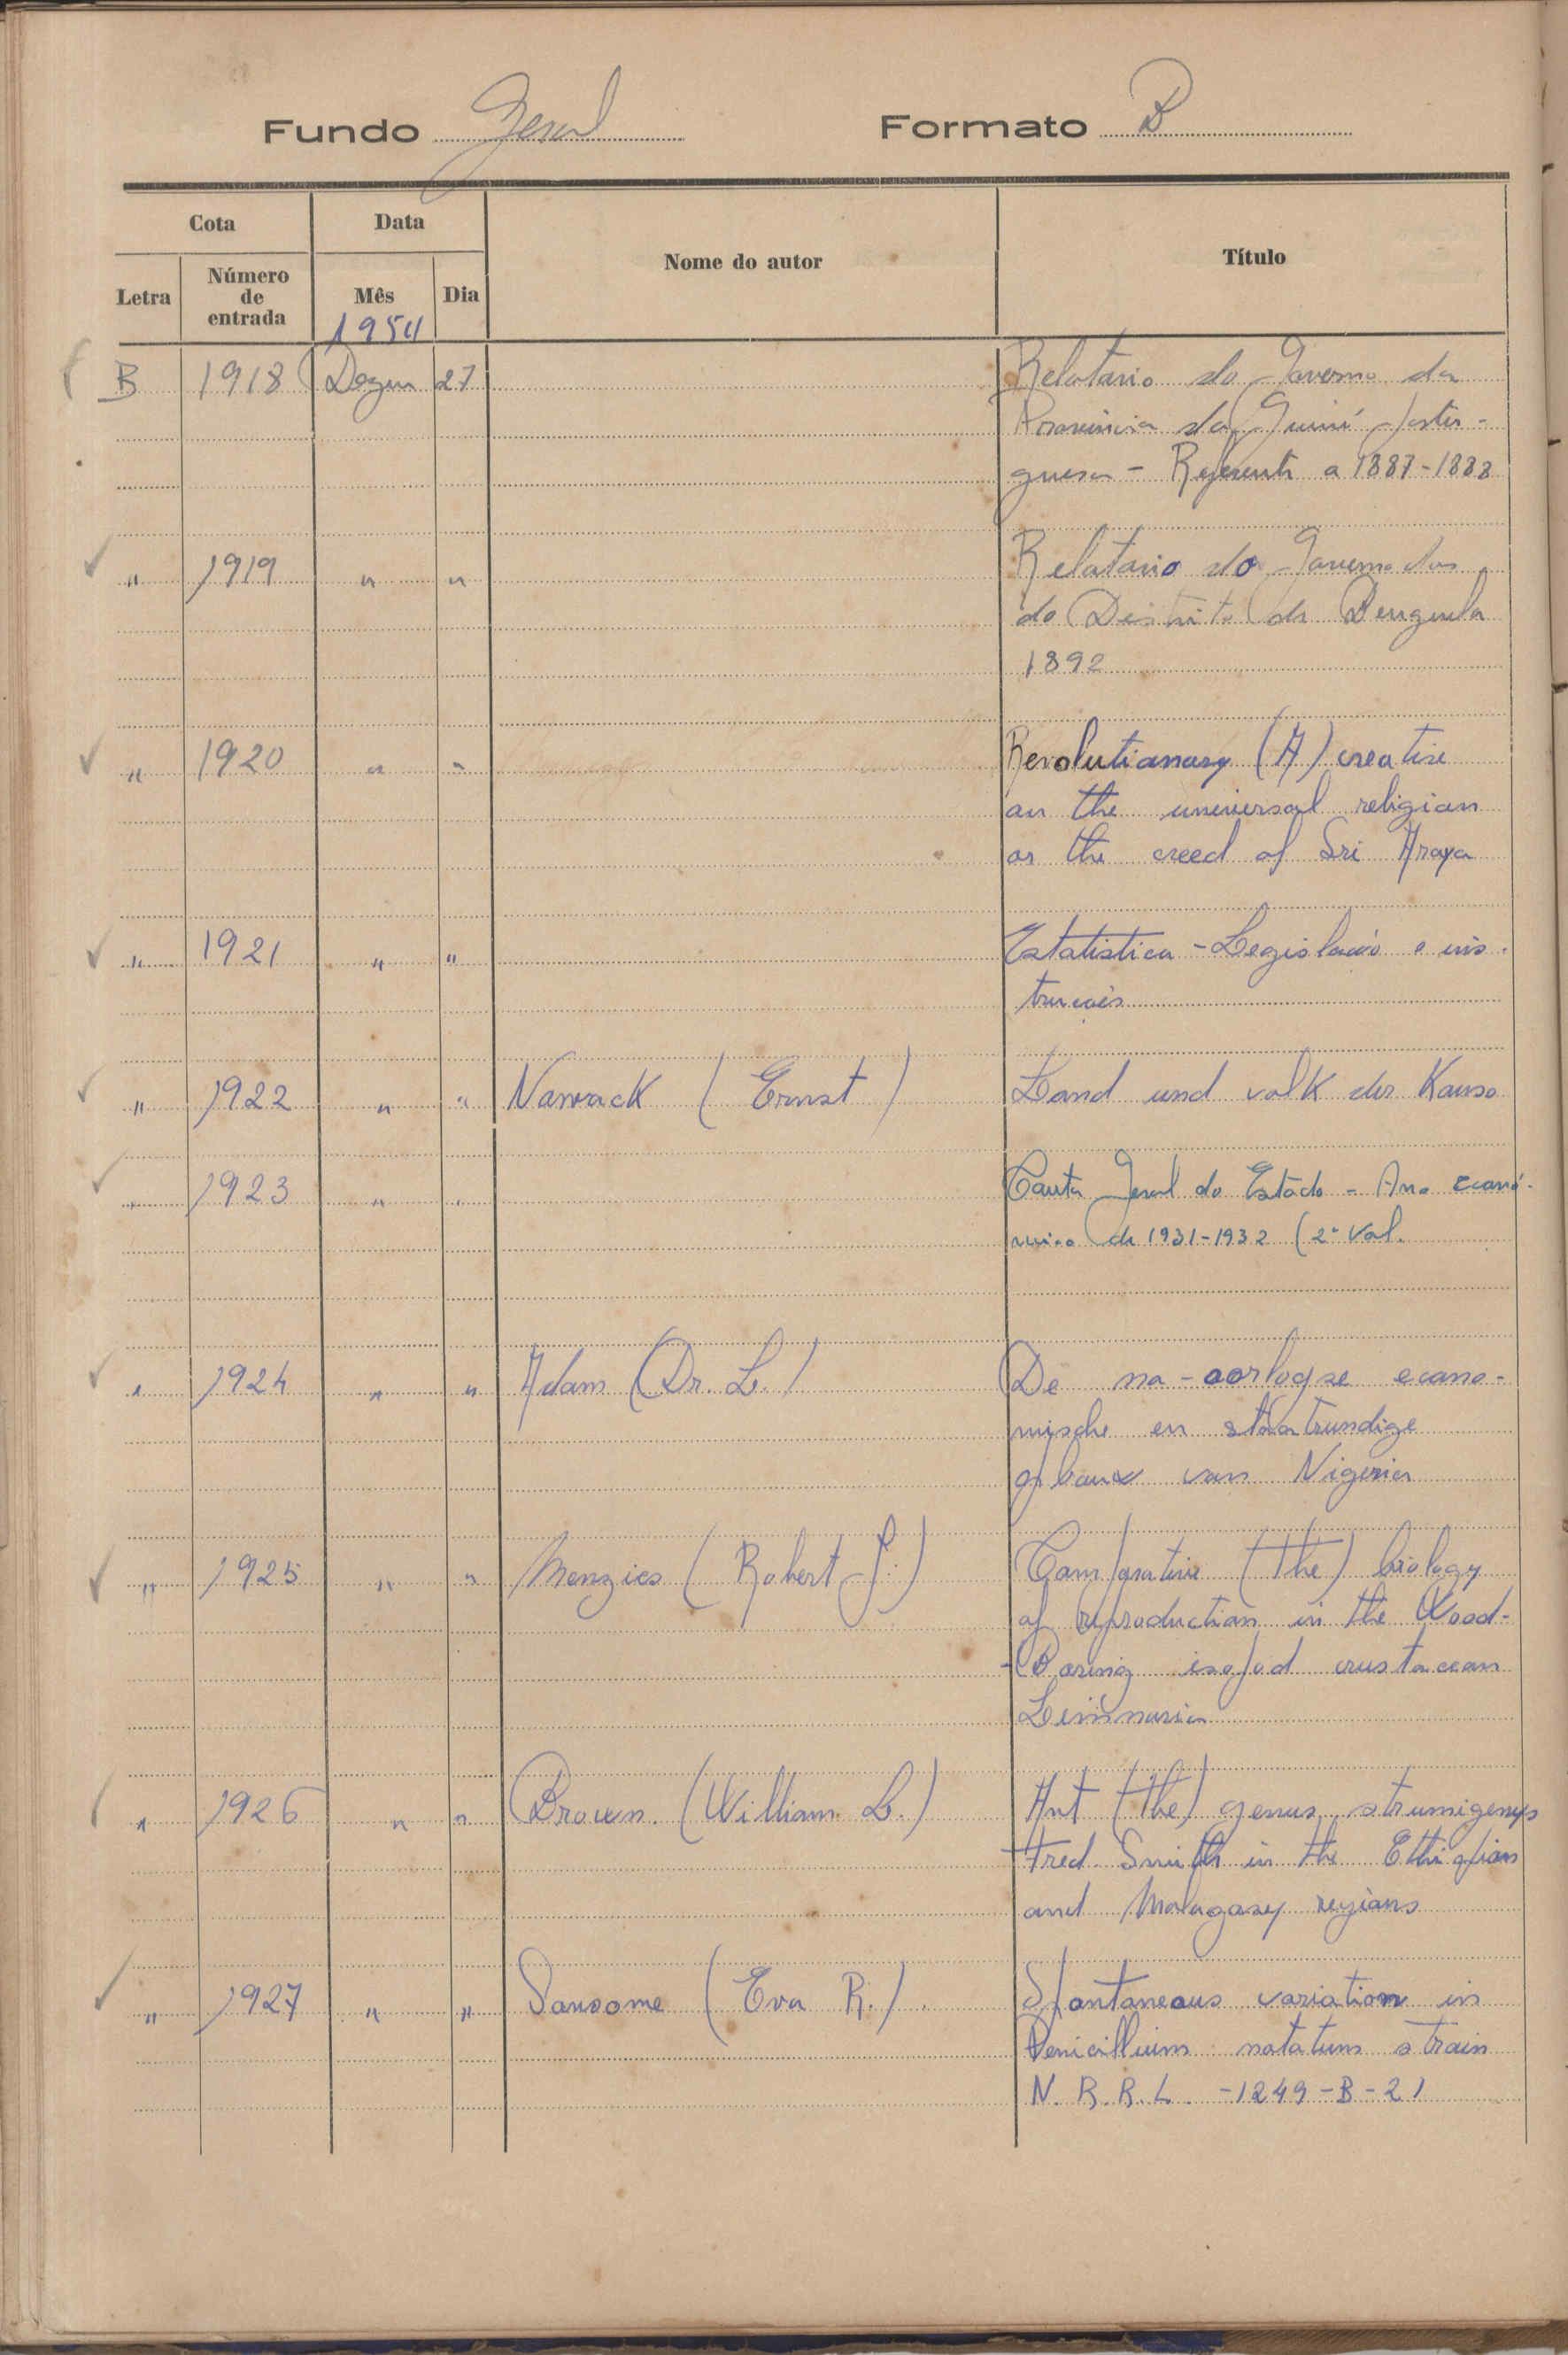 Fundo Geral Formato B
Cota Data Nome do autor Título
Letra Número de entrada Mês Dia
1954
B 1918 Dezem 27 Relatorio do Governo da
Provincia da Guiné Portu-
guesa - Referente a 1887-1888
" 1919 " " Relatorio do Governo
do Distrito de Benguela
1892
" 1920 " " Revolutionary (A) creatise
on the universal religion
or the creed of Sri Araya
" 1921 " " Estatistica - Legislação e ins-
truções
" 1922 " " Nowack (Ernst) Land und volk der Konso
" 1923 " " Conta Geral do Estado - Ano econó-
mico de 1931-1932 (2º Vol.
" 1924 " " Adam (Dr. L.) De na-oorlogse econo-
mische en
van Nigeria
" 1925 " " Menzies (Robert J.) Comparative (the) biology
of reproduction in the Wood-
-Boring isopod crustacean
" 1926 " " Brown (William L.) Ant (the) genus strumigenys
Fred. Smith in the Ethiopian
and Malagasy regions
" 1927 " " Sansome (Eva R.) Spontaneous variation in
Penicillium notatum strain
N.R.R.L. -1249-B-21